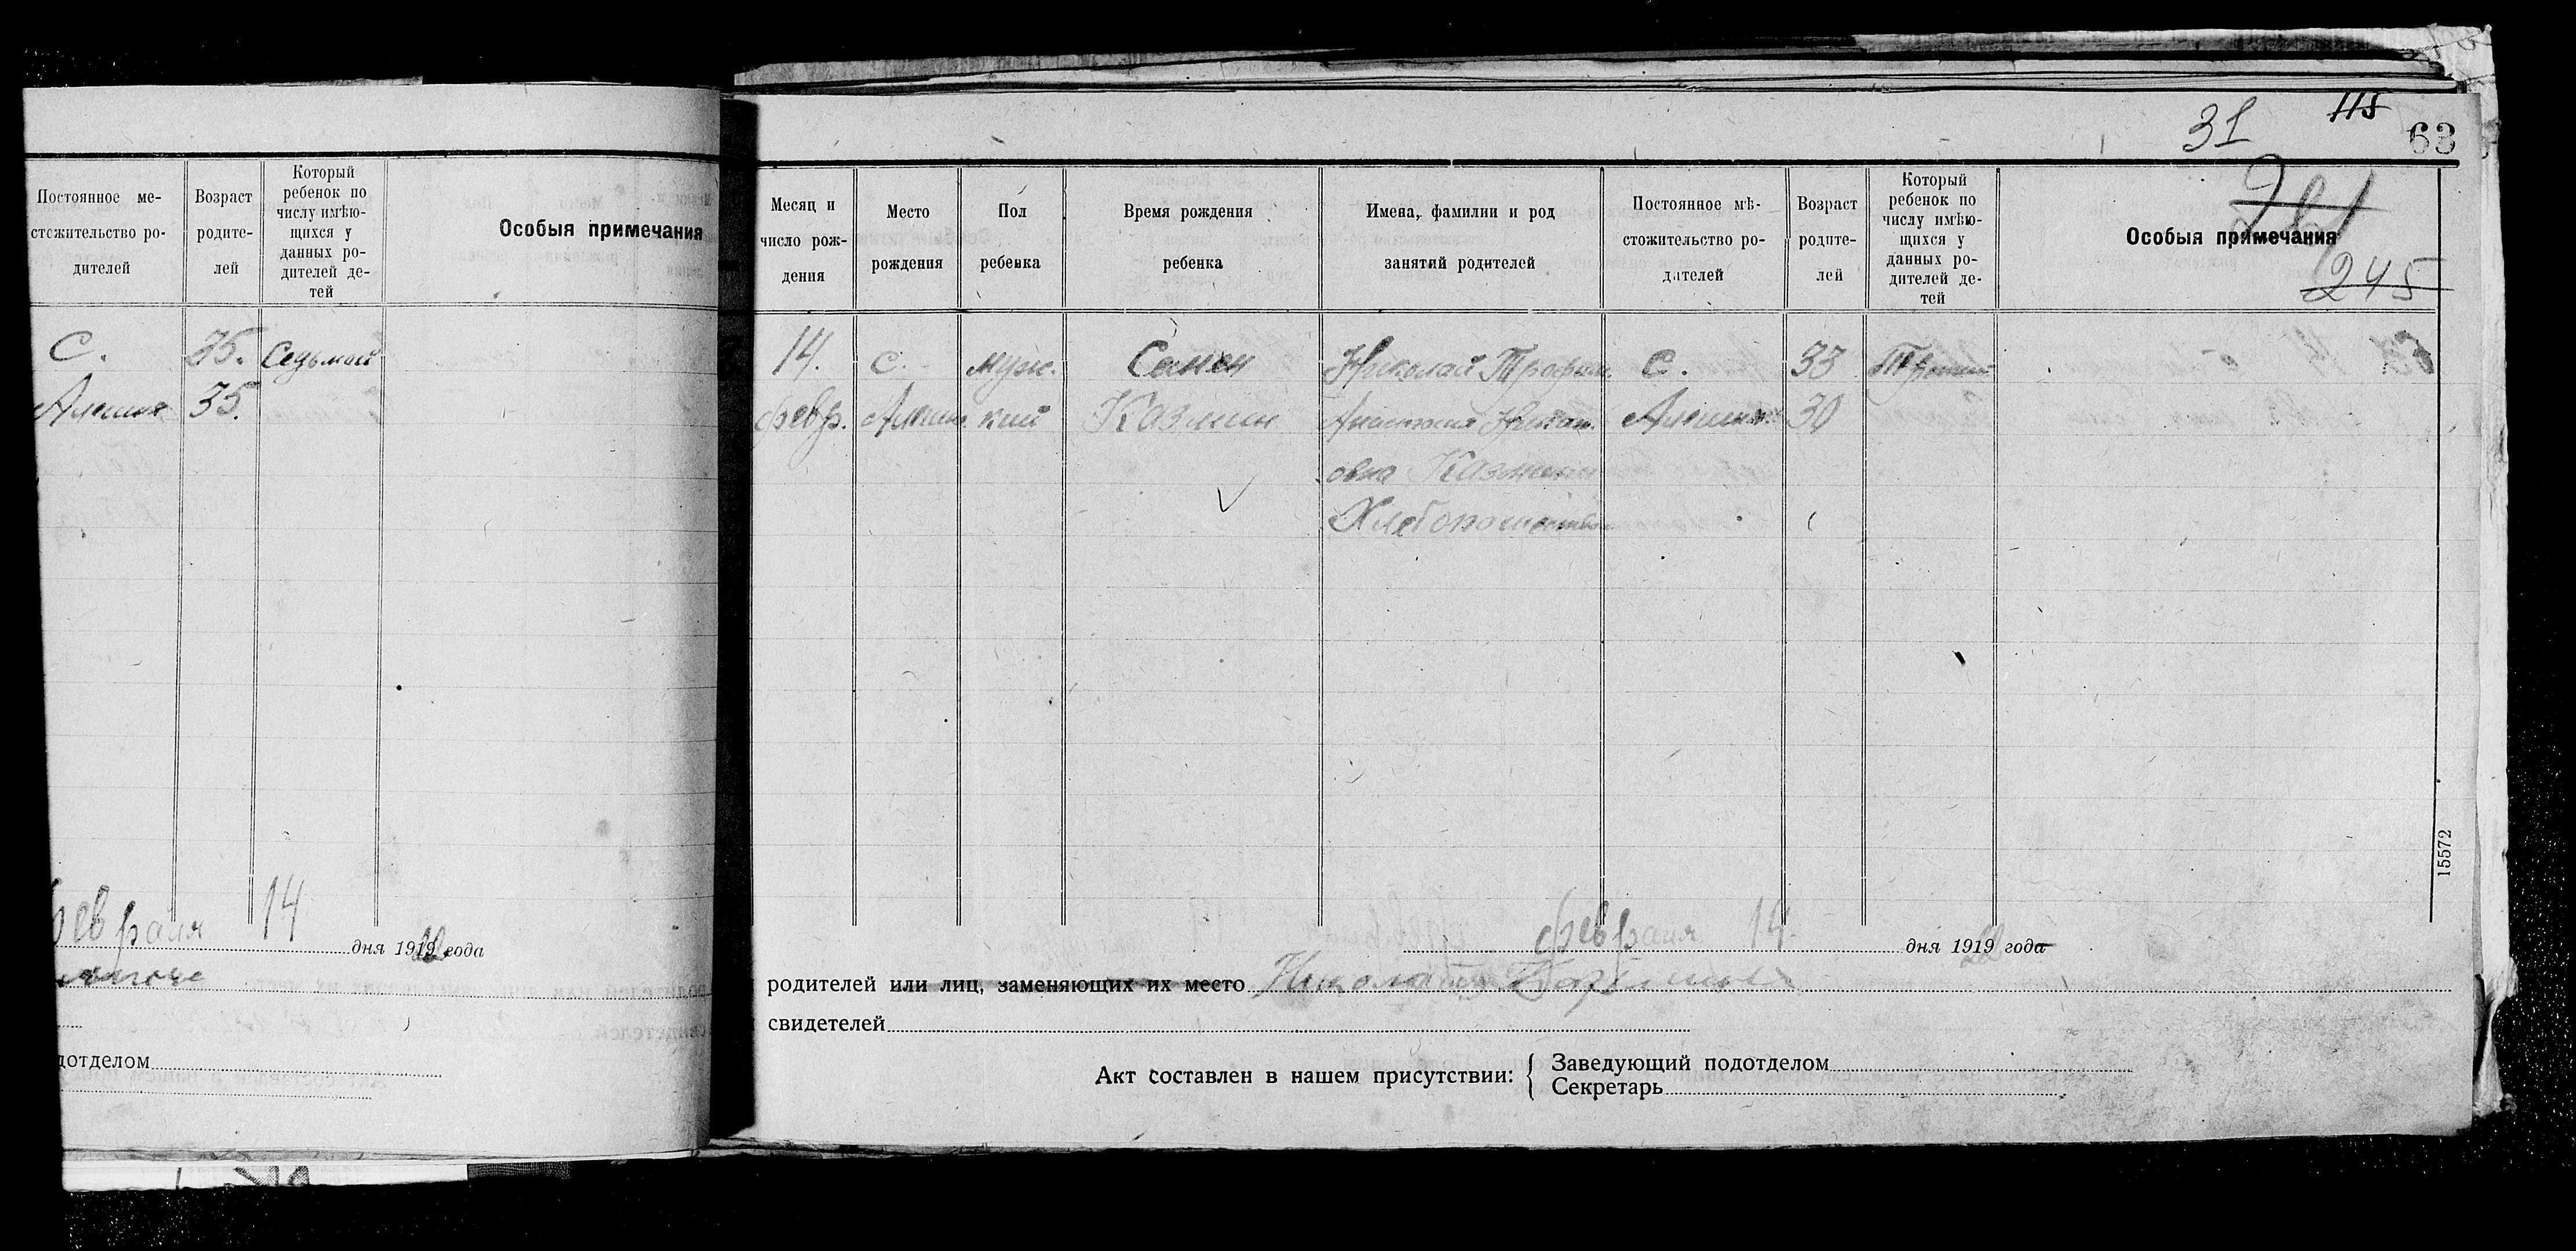 Постоянное ме-
стожительство ро-
дителей
Возраст
родите-
лей
Который
ребенок по
числу имѣю-
щихся у
данных ро-
дителей де-
тей
Особыя примечания
С.
35. Седьмой
35.
февраля 14
дня 1919 года
дотделом
31
115
63
245
Месяц и
число рож-
дения
Место
рождения
Пол
ребенка
Время рождения
ребенка
Имена, фамилии и род
занятий родителей
Постоянное мѣ-
стожительство ро-
дителей
Возраст
родите-
лей
Который
ребенок по
числу имѣю-
щихся у
данных ро-
дителей де-
тей
Особыя примечания
14. С. муж. Семен Николай Трофим. С. 33
февр. кий Казмин 30
овна
Хлебопашество
15572
февраля 14
дня 1919 22 года
родителей или лиц, заменяющих их место
свидетелей
Акт составлен в нашем присутствии:
Заведующий подотделом
Секретарь